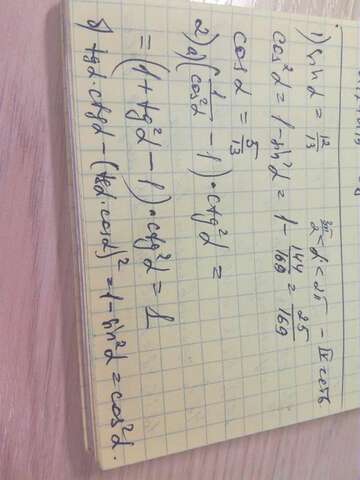 1) sin α = 12/13   3π/2 < α < 2π – IV четв
cos²α = 1 – sin²α = 1 – 144/169 = 25/169
cos α = 5/13
2) а) (1/cos²α – 1) · ctg²α =
= (1 + tg²α – 1) · ctg²α = 1
б) tgα · ctgα – (tgα · cosα)² = 1 – sin²α = cos²α.